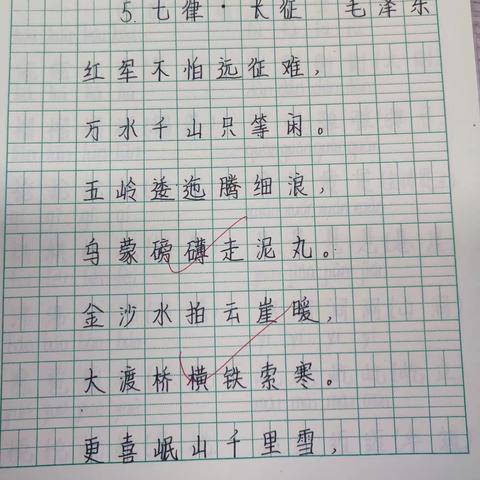 5.七律·长征 毛泽东
红军不怕远征难，
万水千山只等闲。
五岭逶迤腾细浪，
乌蒙磅礴走泥丸。
金沙水拍云崖暖，
大渡桥横铁索寒。
更喜岷山千里雪，